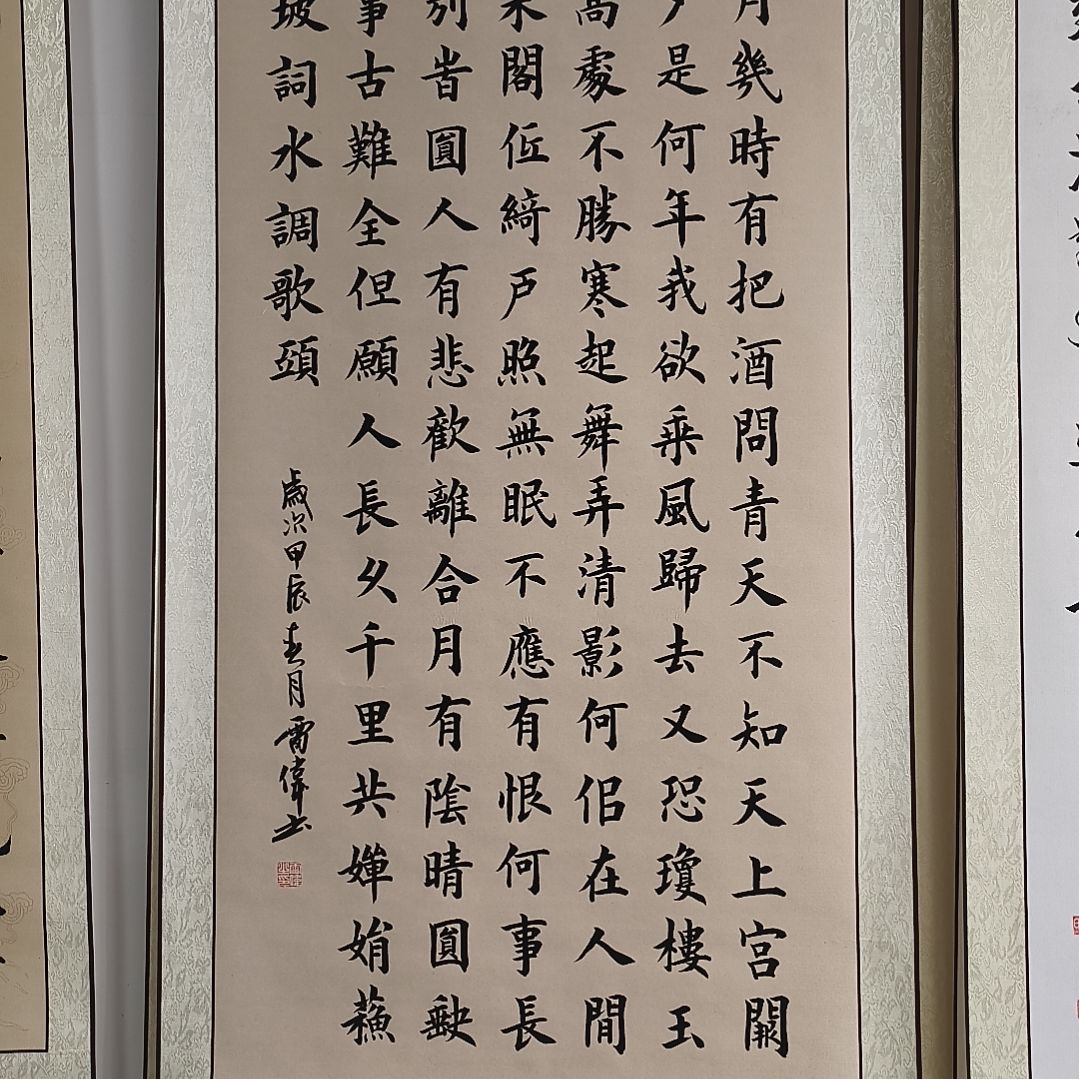 月幾時有把酒問青天不知天上宮闕
夕是何年我欲乘風歸去又恐瓊樓玉
高處不勝寒起舞弄清影何佀在人間
朱閣低綺戶照無眠不應有恨何事長
別旹圓人有悲歡離合月有陰晴圓缺
事古難全但願人長久千里共嬋娟蘇
坡詞水調歌頭
歲次甲辰春月雷偉書